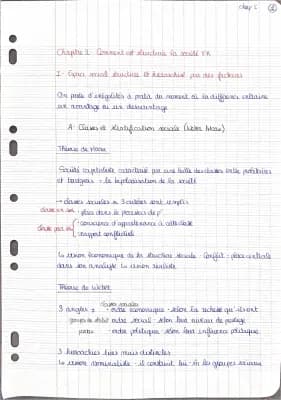 chap 1
1
Chapitre 1 Comment est structurée la société FR
I- Espace social structuré et hiérarchisé par des facteurs
On parle d'inégalités à partir du moment où la différence entraîne
un avantage ou un désavantage
A- Classes et stratification sociale (Weber, Marx)
Théorie de Marx
Société capitaliste caractérisé par une lutte des classes entre prolétaires
et bourgeois = la bipolarisation de la société
→ classes sociales si 3 critères sont remplis
classe en soi - place dans le processus de p°
classe pour soi - conscience d'appartenance à cette classe
- rapport conflictuel
↳ vision économique de la structure sociale - Conflit = place centrale
dans son analyse ↳ vision réaliste
Théorie de Weber
classes sociales
3 angles : - ordre économique - selon la richesse qu'ils ont
groupes de statut - ordre social - selon leur niveau de prestige
partis - ordre politique - selon leur influence politique
3 hiérarchies liées mais distinctes
↳ vision nominaliste - il construit lui-même les groupes sociaux